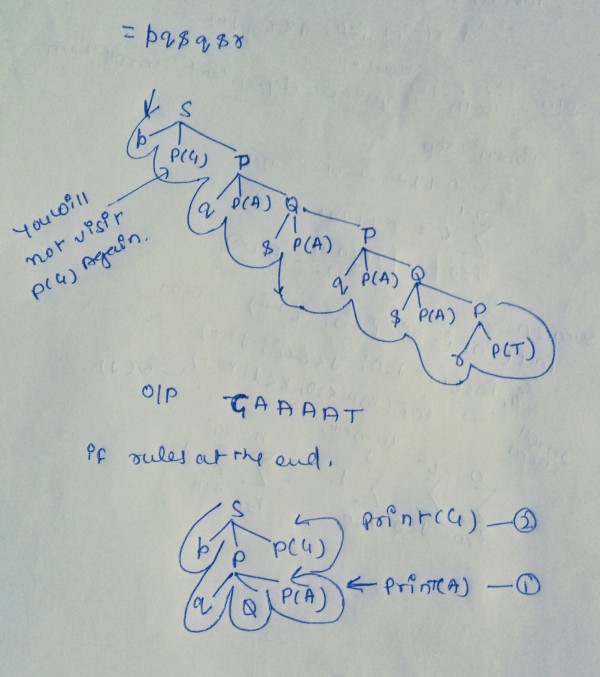 = pq$q$r
S
p P(G) P
q P(A) Q
$ P(A) P
q P(A) Q
$ P(A) P
r P(T)
You will
not visit
P(G) Again.
O/P GAAAAT
if rules at the end.
S
p P P(G) Print(G) — ②
q Q P(A) ← Print(A) — ①